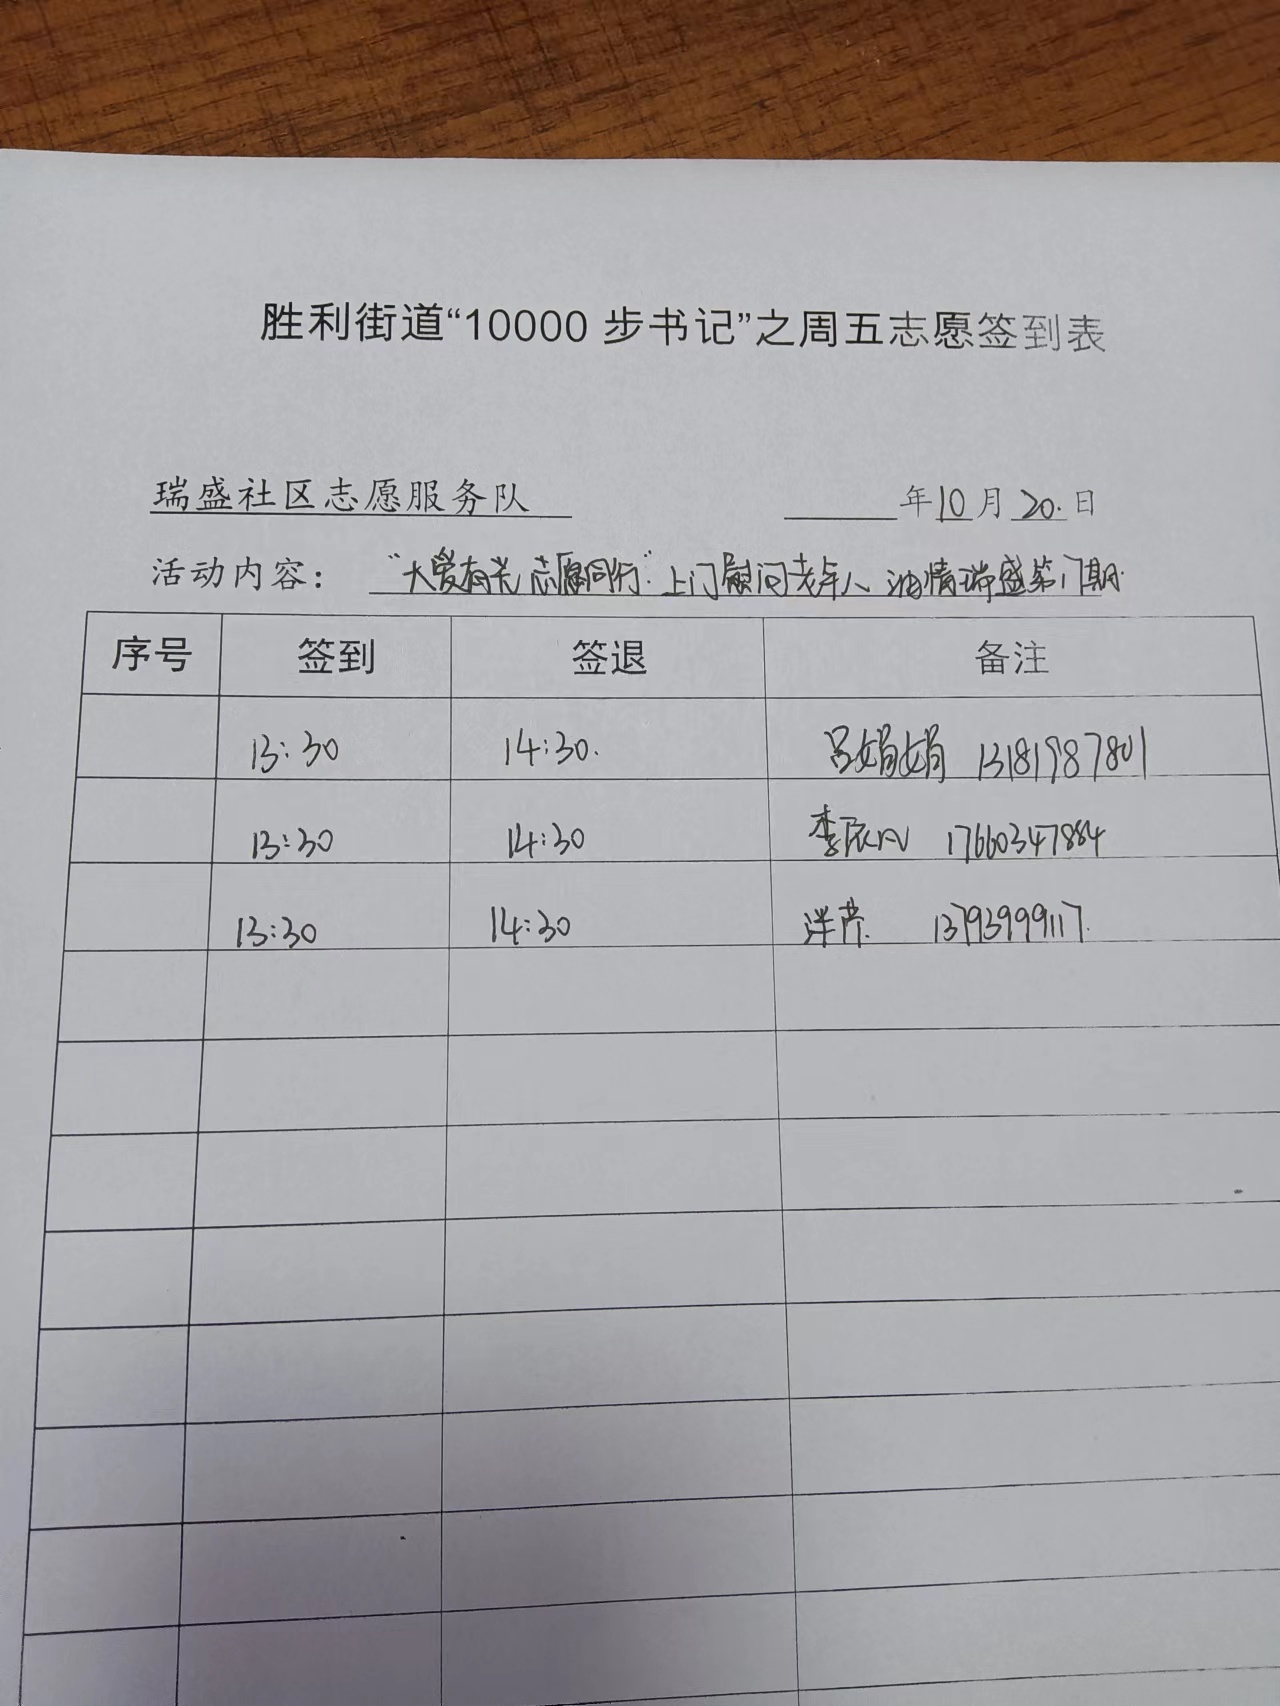 胜利街道“10000 步书记”之周五志愿签到表
瑞盛社区志愿服务队 年10月20.日
活动内容: “大爱有光 志愿同行”上门慰问老年人 油情瑞盛第 期
序号 签到 签退 备注
13:30 14:30. 吕娟娟 13181987801
13:30 14:30 李辰 17660347884
13:30 14:30 13793999117